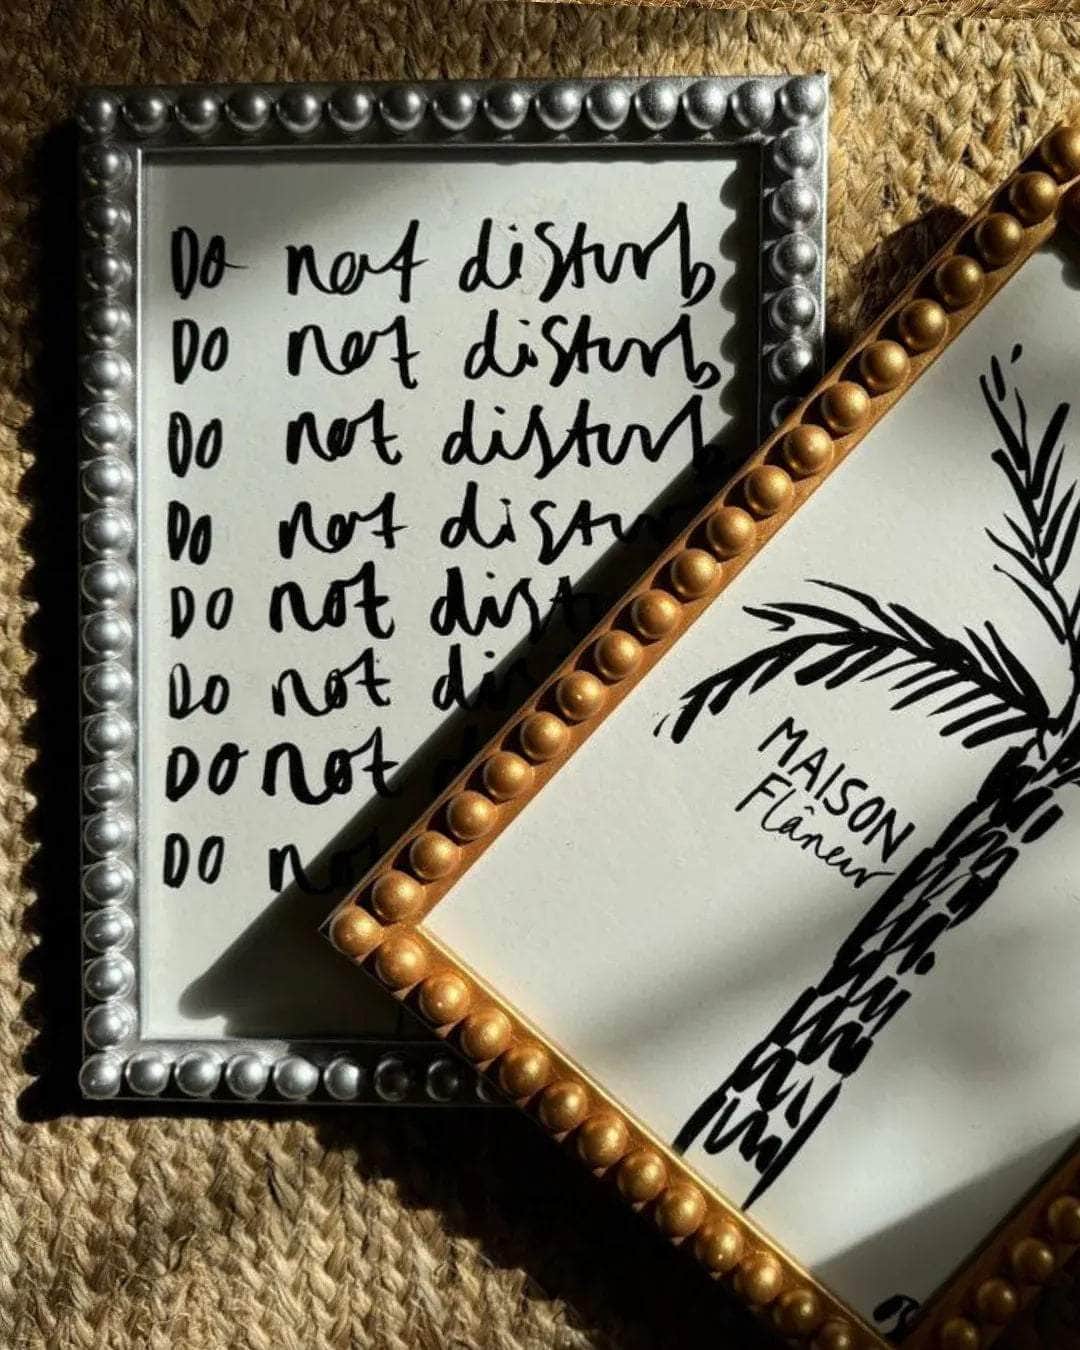 Do not disturb
Do not disturb
Do not disturb
Do not distu
Do not dist
Do not dis
Do not d
Do no
MAISON
Flâneur